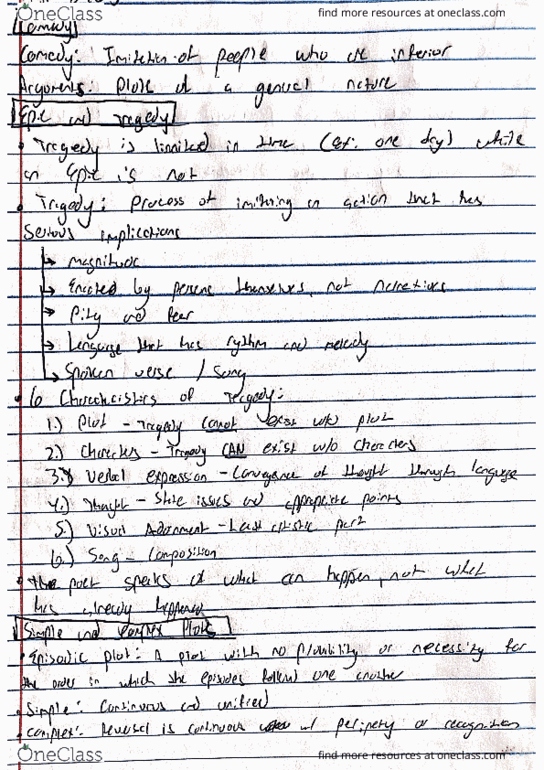 OneClass find more resources at oneclass.com
Comedy
Comedy: Imitation of people who are inferior
Arguments: Plots of a general nature
Epic and Tragedy
• Tragedy is limited in time (Ex: one day) while
an Epic is not
• Tragedy: Process of imitating an action that has
Serious implications
→ magnitude
→ Enacted by persons themselves, not narratives
→ Pity and Fear
→ Language that has rythm and melody
→ Spoken verse / Song
• 6 Characteristics of Tragedy:
1.) Plot - Tragedy cannot exist w/o plot
2.) Characters - Tragedy CAN exist w/o characters
3.) Verbal expression - Conveyance of thought through language
4.) Thought - State issues and appropriate points
5.) Visual Adornment - Least artistic part
6.) Song - Composition
• The poet speaks of what can happen, not what
has already happened
Simple and Complex Plots
• Episodic plot: A plot with no probability or necessity for
the order in which the episodes follow one another
• Simple: Continuous and unified
• Complex: Reversal is continuous w/ peripety or recognition
OneClass find more resources at oneclass.com